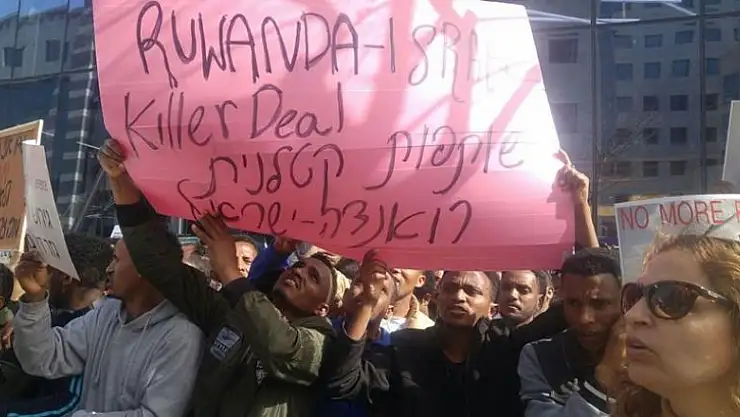 RUWANDA-ISRAEL
Killer Deal
שותפות קטלנית
רואנדה-ישראל
NO MORE